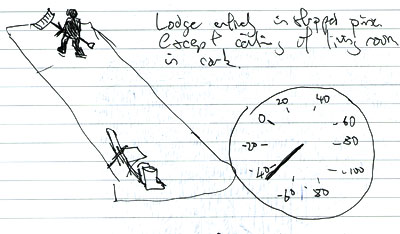 Lodge entirely in stripped pine
except ceiling of living room
in cork.
0 20 40
-20 -60
-40 -80
-60 80 -100